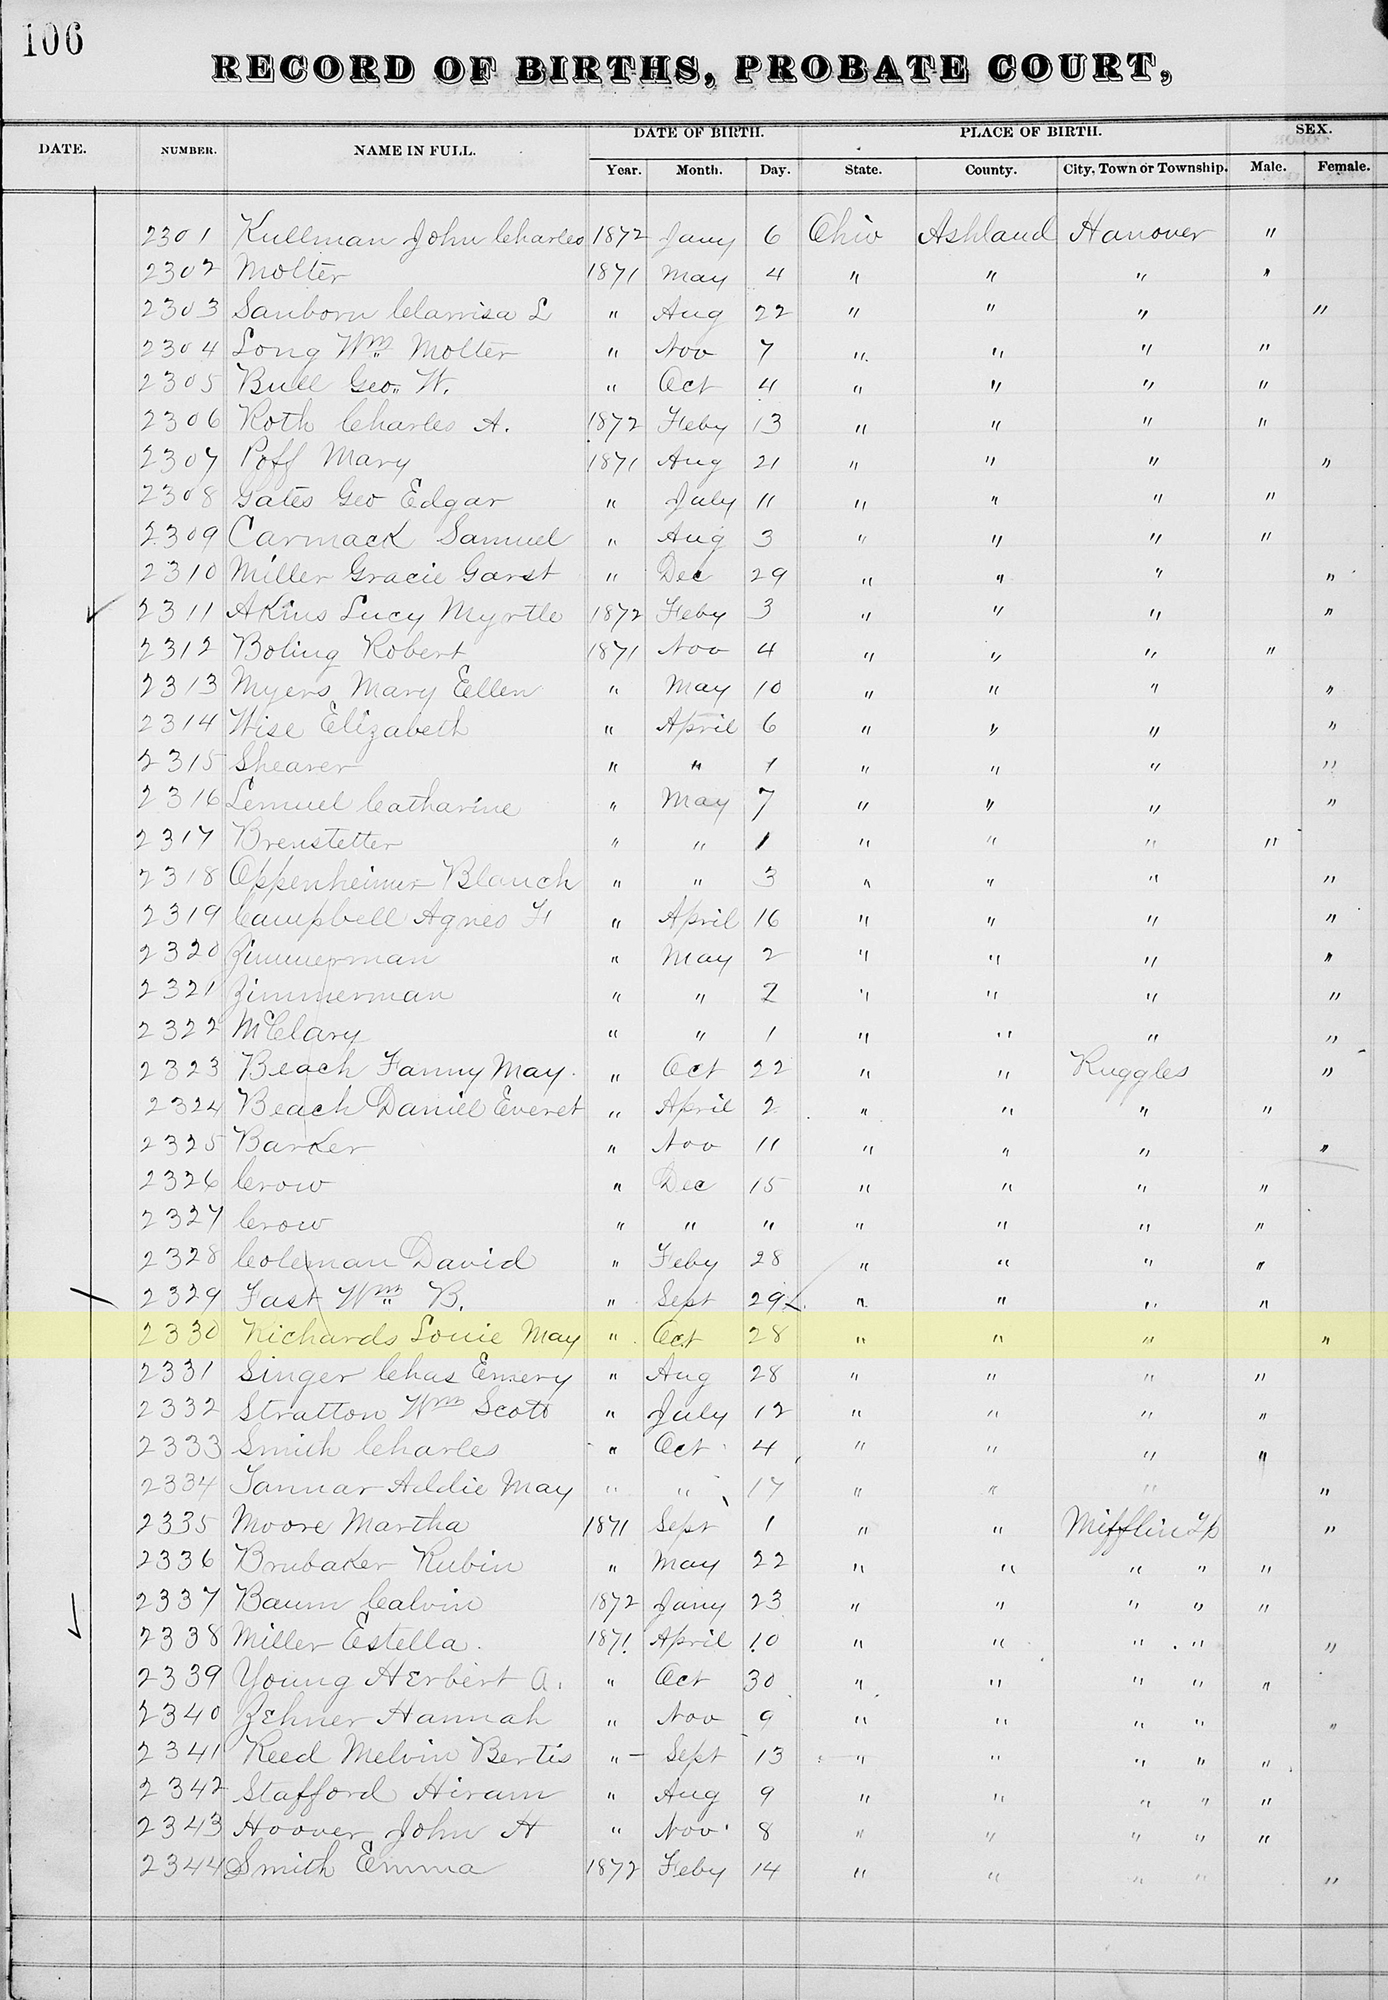 106
RECORD OF BIRTHS, PROBATE COURT,
DATE. NUMBER. NAME IN FULL. DATE OF BIRTH. PLACE OF BIRTH. SEX.
Year. Month. Day. State. County. City, Town or Township. Male. Female.
2301 Kullman John Charles 1872 Jany 6 Ohio Ashland Hanover "
2302 Molter 1871 May 4 " " " "
2303 Sanborn Clarrisa L " Aug 22 " " " "
2304 Long Wm Molter " Nov 7 " " " "
2305 Bull Geo. W. " Oct 4 " " " "
2306 Roth Charles A. 1872 Feby 13 " " " "
2307 Poff Mary 1871 Aug 21 " " " "
2308 Gates Geo Edgar " July 11 " " " "
2309 Carmack Samuel " Aug 3 " " " "
2310 Miller Gracie Garst " Dec 29 " " " "
2311 Akins Lucy Myrtle 1872 Feby 3 " " " "
2312 Boling Robert 1871 Nov 4 " " " "
2313 Myers Mary Ellen " May 10 " " " "
2314 Wise Elizabeth " April 6 " " " "
2315 Shearer " " 1 " " " "
2316 Lemuel Catharine " May 7 " " " "
2317 Brenstetter " " 1 " " " "
2318 Oppenheimer Blanch " " 3 " " " "
2319 Campbell Agnes F " April 16 " " " "
2320 Zimmerman " May 2 " " " "
2321 Zimmerman " " 2 " " " "
2322 McClary " " 1 " " " "
2323 Beach Fanny May. " Oct 22 " " Ruggles "
2324 Beach Daniel Everet " April 2 " " " "
2325 Barker " Nov 11 " " " "
2326 Crow " Dec 15 " " " "
2327 Crow " " " " " " "
2328 Coleman David " Feby 28 " " " "
2329 Fast Wm B. " Sept 29 " " " "
2330 Richards Louie May " Oct 28 " " " "
2331 Singer Chas Emery " Aug 28 " " " "
2332 Stratton Wm Scott " July 12 " " " "
2333 Smith Charles " Oct 4 " " " "
2334 Tannar Addie May " " 17 " " " "
2335 Moore Martha 1871 Sept 1 " " Mifflin Tp "
2336 Brubaker Rubin " May 22 " " " " "
2337 Baum Calvin 1872 Jany 23 " " " " "
2338 Miller Estella. 1871 April 10 " " " " "
2339 Young Herbert A. " Oct 30 " " " " "
2340 Zehner Hannah " Nov 9 " " " " "
2341 Reed Melvin Bertis " Sept 13 " " " " "
2342 Stafford Hiram " Aug 9 " " " " "
2343 Hoover John H " Nov 8 " " " " "
2344 Smith Emma 1872 Feby 14 " " " " "